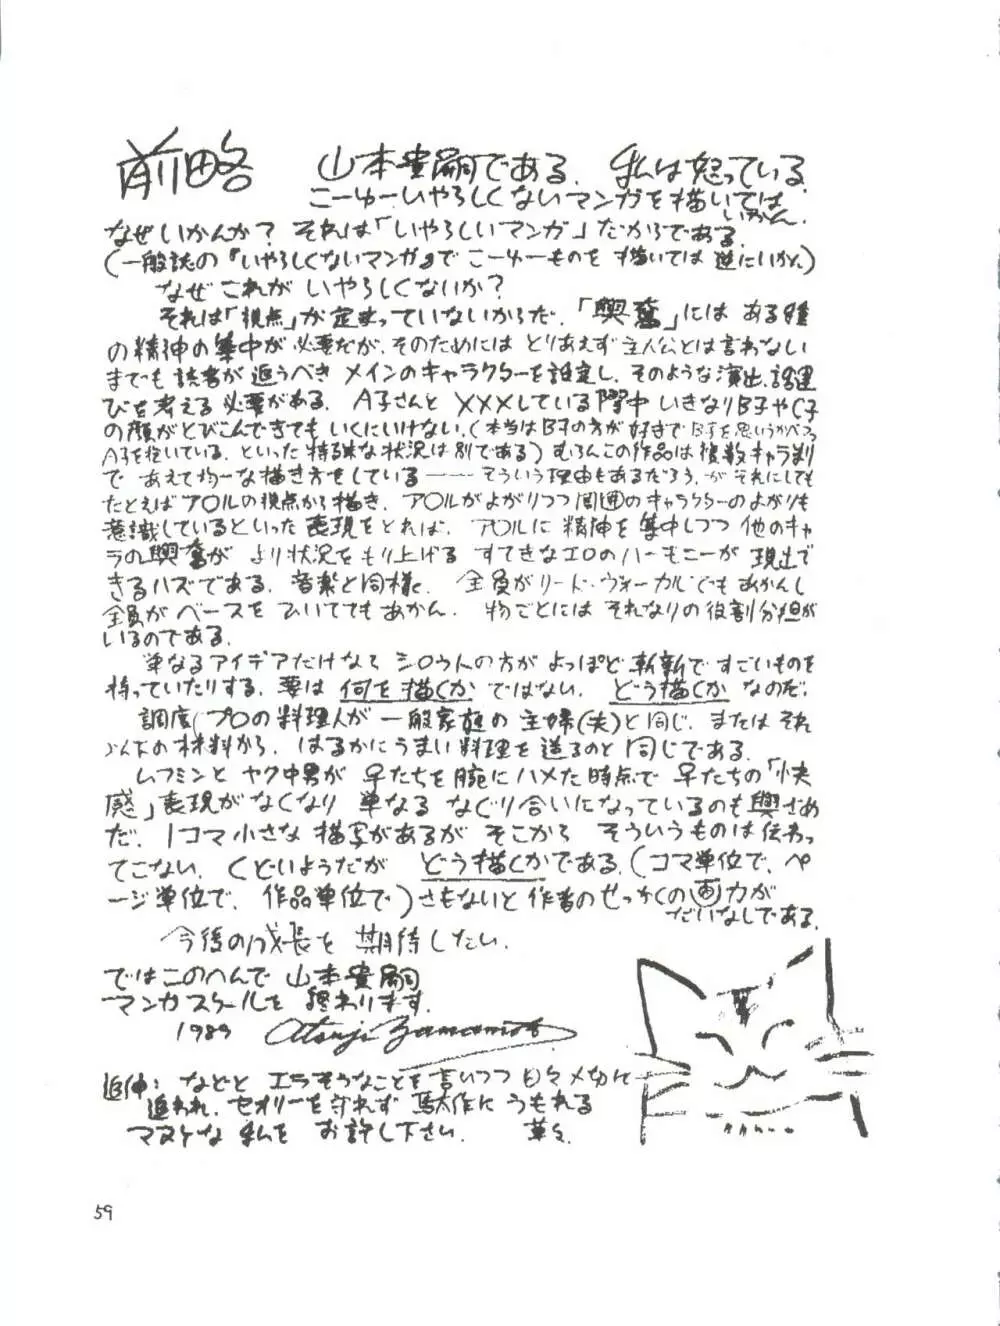 前略 山本貴嗣である。私は怒っている。
こーゆーいやらしくないマンガを描いては
いかん。
なぜいかんか？それは「いやらしいマンガ」だからである。
(一般誌の『いやらしくないマンガ』でこーゆーものを描いては逆にいかん)
なぜこれがいやらしくないか？
それは「視点」が定まっていないからだ。「興奮」にはある種
の精神の集中が必要だが、そのためにはとりあえず主人公とは言わない
までも読者が追うべきメインのキャラクターを設定し、そのような演出、話運
びを考える必要がある。A子さんとXXXしている際中いきなりB子やC子
の顔がとびこんできてもいくにいけない。(本当はB子の方が好きでB子を思いうかべつつ
A子を抱いている、といった特殊な状況は別である)むろんこの作品は複数キャラ割
であえて均一な描き方をしている——そういう理由もあるだろう、がそれにしても
たとえばア○ルの視点から描き、ア○ルがよがりつつ周囲のキャラクターのよがりも
意識しているといった表現をとれば、ア○ルに精神を集中しつつ他のキャ
ラの興奮がより状況をもり上げるすてきなエロのハーモニーが現出で
きるハズである。音楽と同様に、全員がリード・ヴォーカルでもあかんし
全員がベースをひいててもあかん。物ごとにはそれなりの役割分担が
いるのである。
単なるアイデアだけならシロウトの方がよっぽど斬新ですごいものを
持っていたりする。要は何を描くかではない。どう描くかなのだ。
調度、プロの料理人が一般家庭の主婦(夫)と同じ、またはそれ
以下の材料から、はるかにうまい料理を造るのと同じである。
ムフミンとヤク中男が早たちを腕にハメた時点で早たちの「快
感」表現がなくなり単なるなぐり合いになっているのも興ざめ
だ。1コマ小さな描写があるがそこからそういうものは伝わっ
てこない。くどいようだがどう描くかである。(コマ単位で、ペ
ージ単位で、作品単位で)さもないと作者のせっかくの画力が
だいなしである。
今後の成長を期待したい。
ではこのへんで山本貴嗣
マンガスクールを終わります。
1989 Atsuji Yamamoto
追伸：などとエラそうなことを言いつつ日々〆切に
追われ、セオリーを守れず駄作にうもれる
マヌケな私をお許し下さい。 草々
59